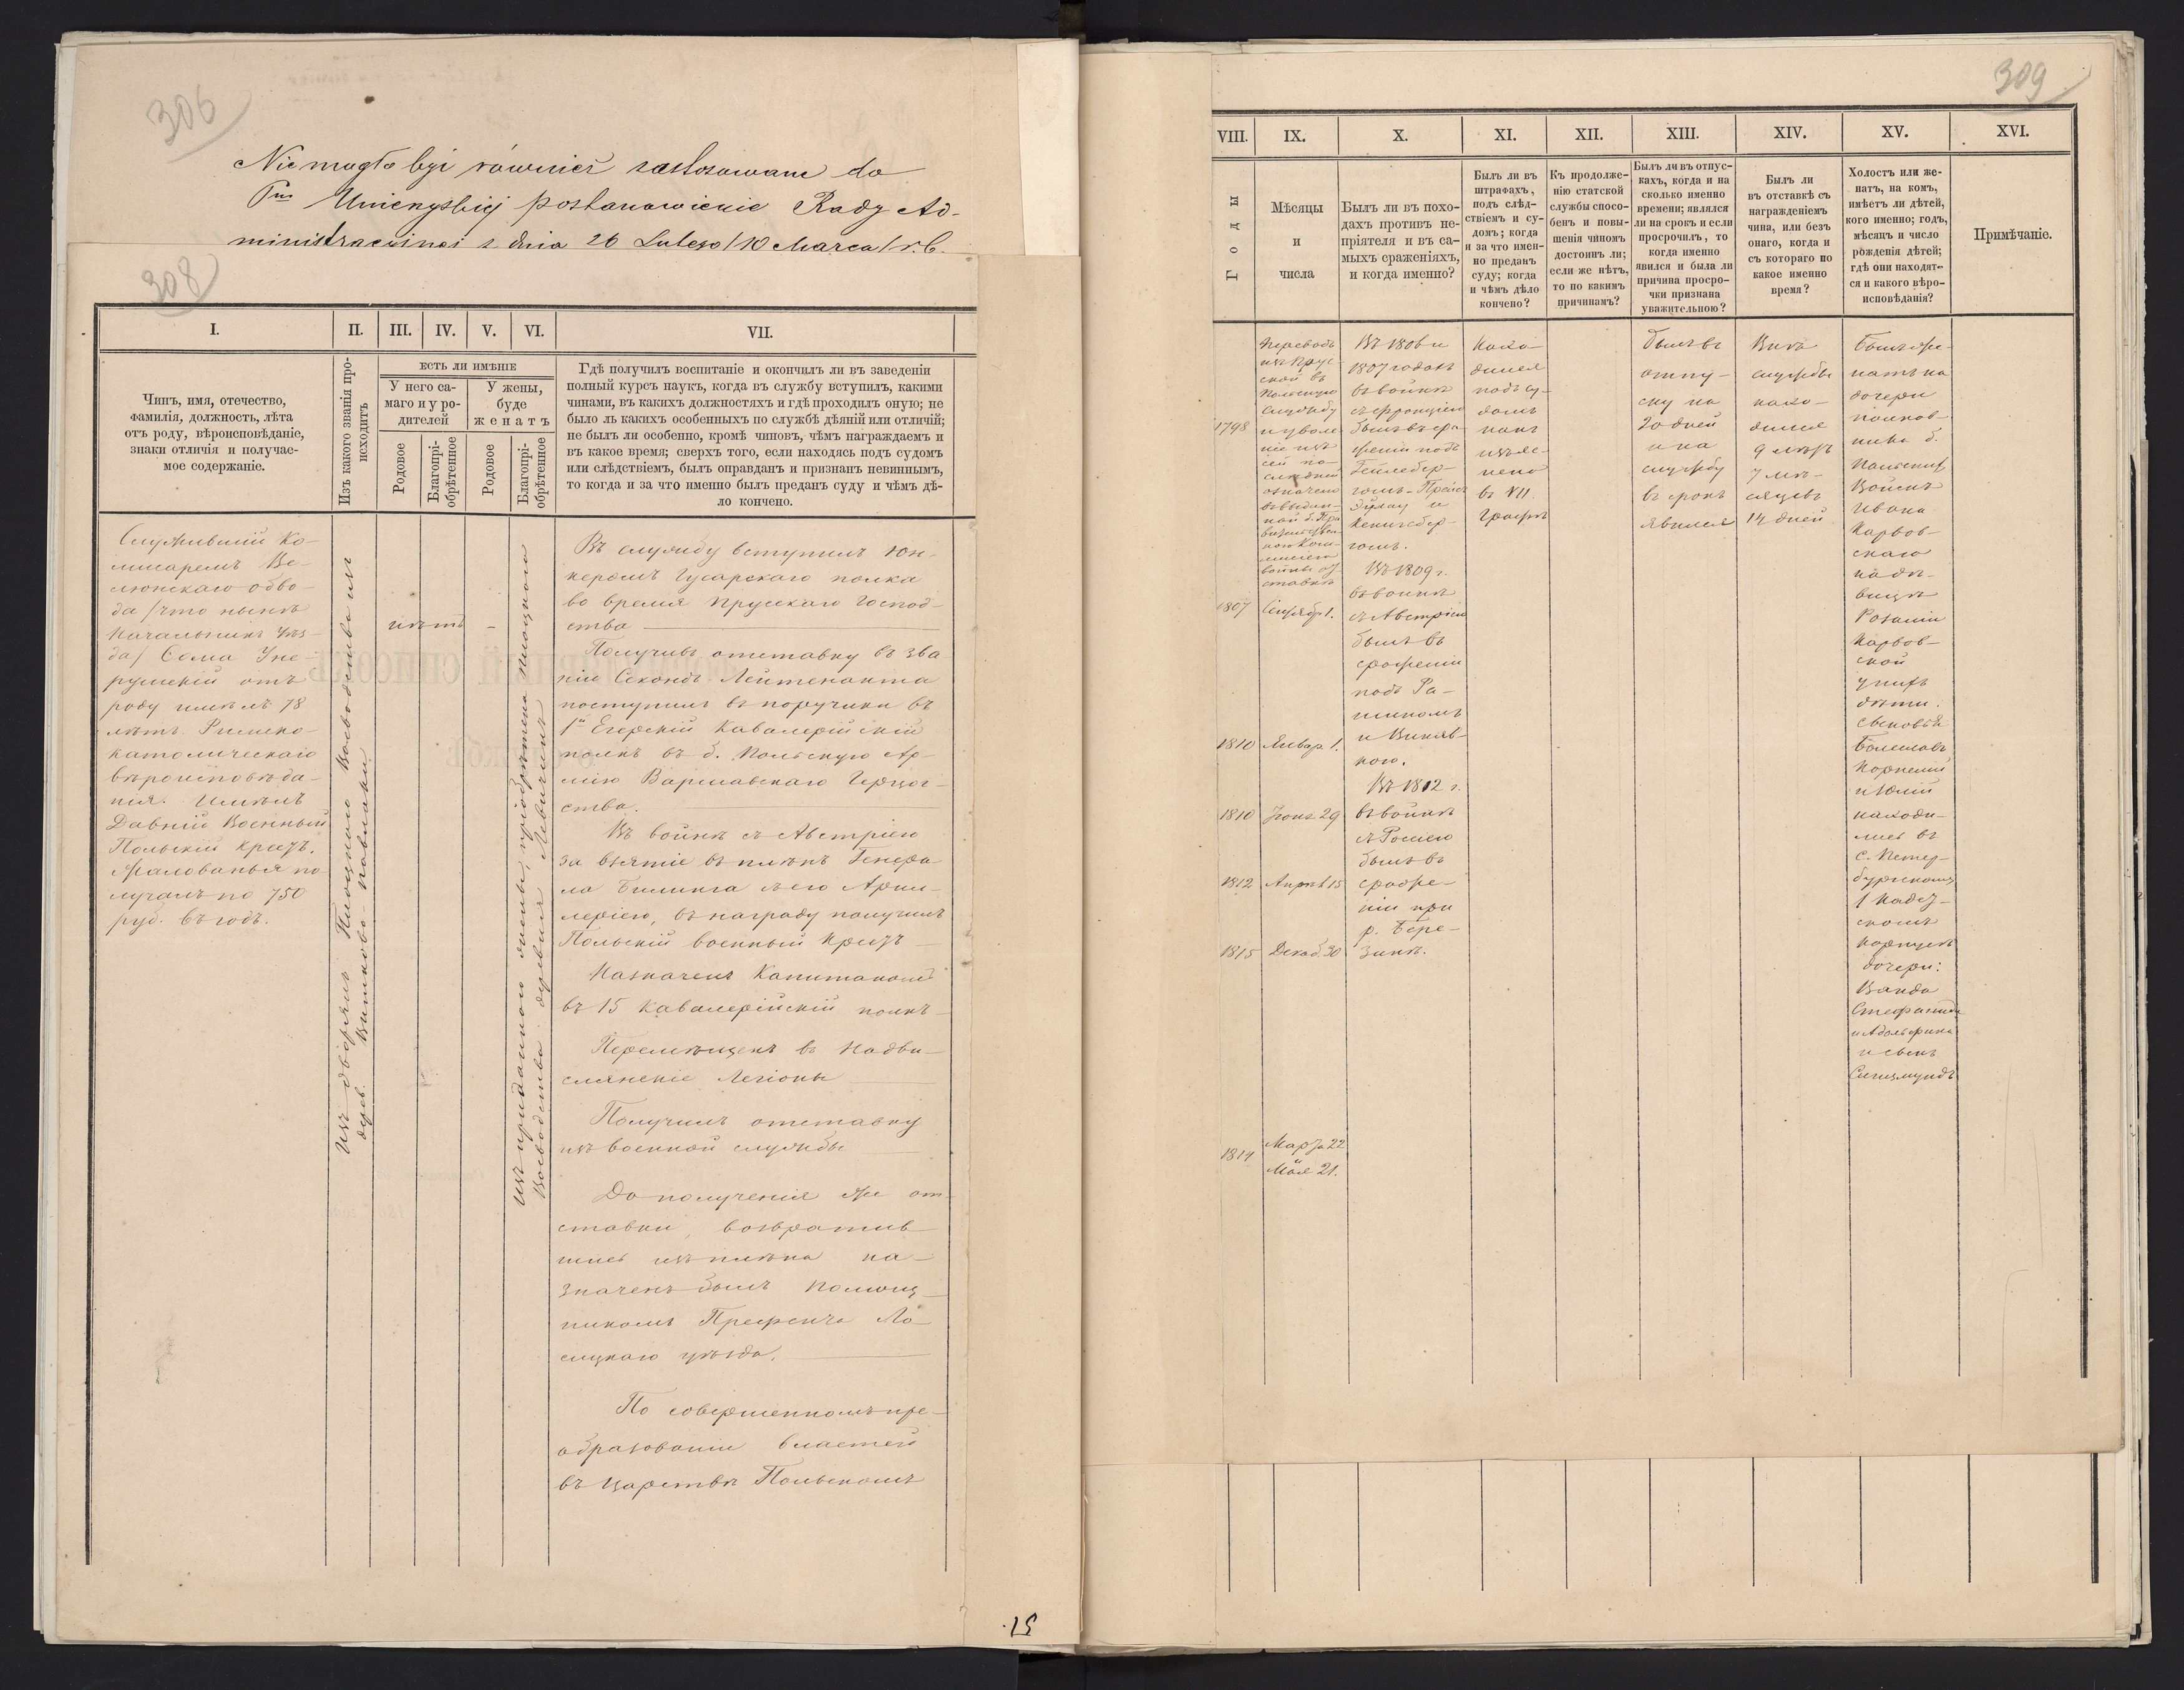 306
Nie mogło być również zastosowane do
Pni Unierzyskiej postanowienie Rady Ad-
ministracyinej z dnia 26 Lutego /10 Marca/ r. b.
308
I.
II.
III.
IV.
V.
VI.
VII.
Чинъ, имя, отечество,
фамилія, должность, лѣта
отъ роду, вѣроисповѣданіе,
знаки отличія и получае-
мое содержаніе.
Изъ какого званія про-
исходитъ
ЕСТЬ ЛИ ИМѢНІЕ
У него са-
маго и у ро-
дителей
У жены,
буде
женатъ
Родовое
Благопрі-
обрѣтенное
Родовое
Благопрі-
обрѣтенное
Гдѣ получилъ воспитаніе и окончилъ ли въ заведеніи
полный курсъ наукъ, когда въ службу вступилъ, какими
чинами, въ какихъ должностяхъ и гдѣ проходилъ оную; не
было ль какихъ особенныхъ по службѣ дѣяній или отличій;
не былъ ли особенно, кромѣ чиновъ, чѣмъ награждаемъ и
въ какое время; сверхъ того, если находясь подъ судомъ
или слѣдствіемъ, былъ оправданъ и признанъ невиннымъ,
то когда и за что именно былъ преданъ суду и чѣмъ дѣ-
ло кончено.
Служившій Ко-
мисаремъ Ве-
люнскаго обво-
да /что нынѣ
Начальникъ Уѣз-
да/ Сома Уне-
рушскій отъ
роду имѣлъ 78
лѣтъ. Римско-
католическаго
вѣроисповѣда-
нія. Имѣлъ
Давній Военный
Польскій крестъ.
Жалованья по
лучалъ по 750
руб. въ годъ.
Изъ дворянъ Плоцкаго Воеводства изъ
дерев.
нѣтъ
–
Изъ приданаго жены, пріобрѣтена Плоцкаго
Воеводства деревня
Въ службу вступилъ Юн-
керомъ Гусарскаго полка
во время Прусскаго Господ-
ства
Получивъ отставку въ зва
ніи Секондъ Лейтенанта
поступилъ въ поручики въ
1й Егерскій Кавалерійскій
полкъ въ б. Польскую Ар-
мію Варшавскаго Герцог-
ства.
Въ войнѣ съ Австріею
за взятіе въ плѣнъ Генера
ла Билинга съ его Арти-
леріею, въ награду получилъ
Польскій военный Крестъ
Назначенъ Капитаномъ
въ 15 Кавалерійскій полкъ
Перемѣщенъ въ Надви-
слянскіе Легіоны
Получилъ отставку
изъ военной службы
До полученія же от
ставки, возвратив
шись изъ плѣна на-
значенъ былъ Помощ-
никомъ Префекта Ло-
сицкаго уѣзда.
По совершенномъ пре-
образованіи властей
въ Царствѣ Польскомъ
51.
309
VIII.
IX.
X.
XI.
XII.
XIII.
XIV.
XV.
XVI.
Годы
Мѣсяцы
и
числа
Былъ ли въ похо-
дахъ противъ не-
пріятеля и въ са-
мыхъ сраженіяхъ,
и когда именно?
Былъ ли въ
штрафахъ,
подъ слѣд-
ствіемъ и су-
домъ; когда
и за что имен-
но преданъ
суду; когда
и чѣмъ дѣло
кончено?
Къ продолже-
нію статской
службы спосо-
бенъ и повы-
шенія чиномъ
достоинъ ли;
если же нѣтъ,
то по какимъ
причинамъ?
Былъ ли въ отпус-
кахъ, когда и на
сколько именно
времени; являлся
ли на срокъ и если
просрочилъ, то
когда именно
явился и была ли
причина просро-
чки признана
уважительною?
Былъ ли
въ отставкѣ съ
награжденіемъ
чина, или безъ
онаго, когда и
съ котораго по
какое именно
время?
Холостъ или же-
натъ, на комъ,
имѣетъ ли дѣтей,
кого именно; годъ,
мѣсяцъ и число
рожденія дѣтей;
гдѣ они находят-
ся и какого вѣро-
исповѣданія?
Примѣчаніе.
1798
1807
1810
1810
1812
1815
1814
Переводъ
изъ Прус-
ской въ
Польскую
службу
и уволе
ніе изъ
сей по-
слѣдней
означено
въ выдан-
ной б. Пра
вительствен
ною Ком-
мисіею
войны от
ставкѣ
Сентяб. 1.
Январ. 1.
Іюня 29
Апрѣл. 15
Декаб. 30
Марта 22
и
Мая 21.
Въ 1806 и
1807 годахъ
въ войнѣ
съ Франціею
былъ въ сра-
женіи подъ
Гейлсбер-
гомъ – Прейс
Эйлау и
Кенигсбер-
гомъ.
Въ 1809 г.
въ войнѣ
съ Австріею
былъ въ
сраженіи
подъ Ра-
шиномъ
и
Въ 1812 г.
въ войнѣ
съ Россіею
былъ въ
сраже-
ніи при
р. Бере-
зинѣ.
Нахо-
дился
подъ су-
домъ
какъ
изъяс-
нено
въ VII.
Графѣ
былъ въ
отпу-
ску на
20 дней
и на
службу
въ срокъ
явился
Внѣ
службы
нахо-
дился
9 лѣтъ
7 мѣ-
сяцевъ
14 дней
Былъ же-
натъ на
дочери
полков-
ника б.
Польскихъ
Войскъ
Ивана
Карвов-
скаго
надъ-
вицѣ
Розаліи
Карвов-
ской
у нихъ
дѣти.
сыновья
Болеславъ
Корнелій
и Юлій
находи-
лись въ
С. Петер-
бургскомъ
1 Кадет-
скомъ
Корпусѣ
дочери:
Ванда
Стефанія
и Адольфина
и сынъ
Сигизмундъ